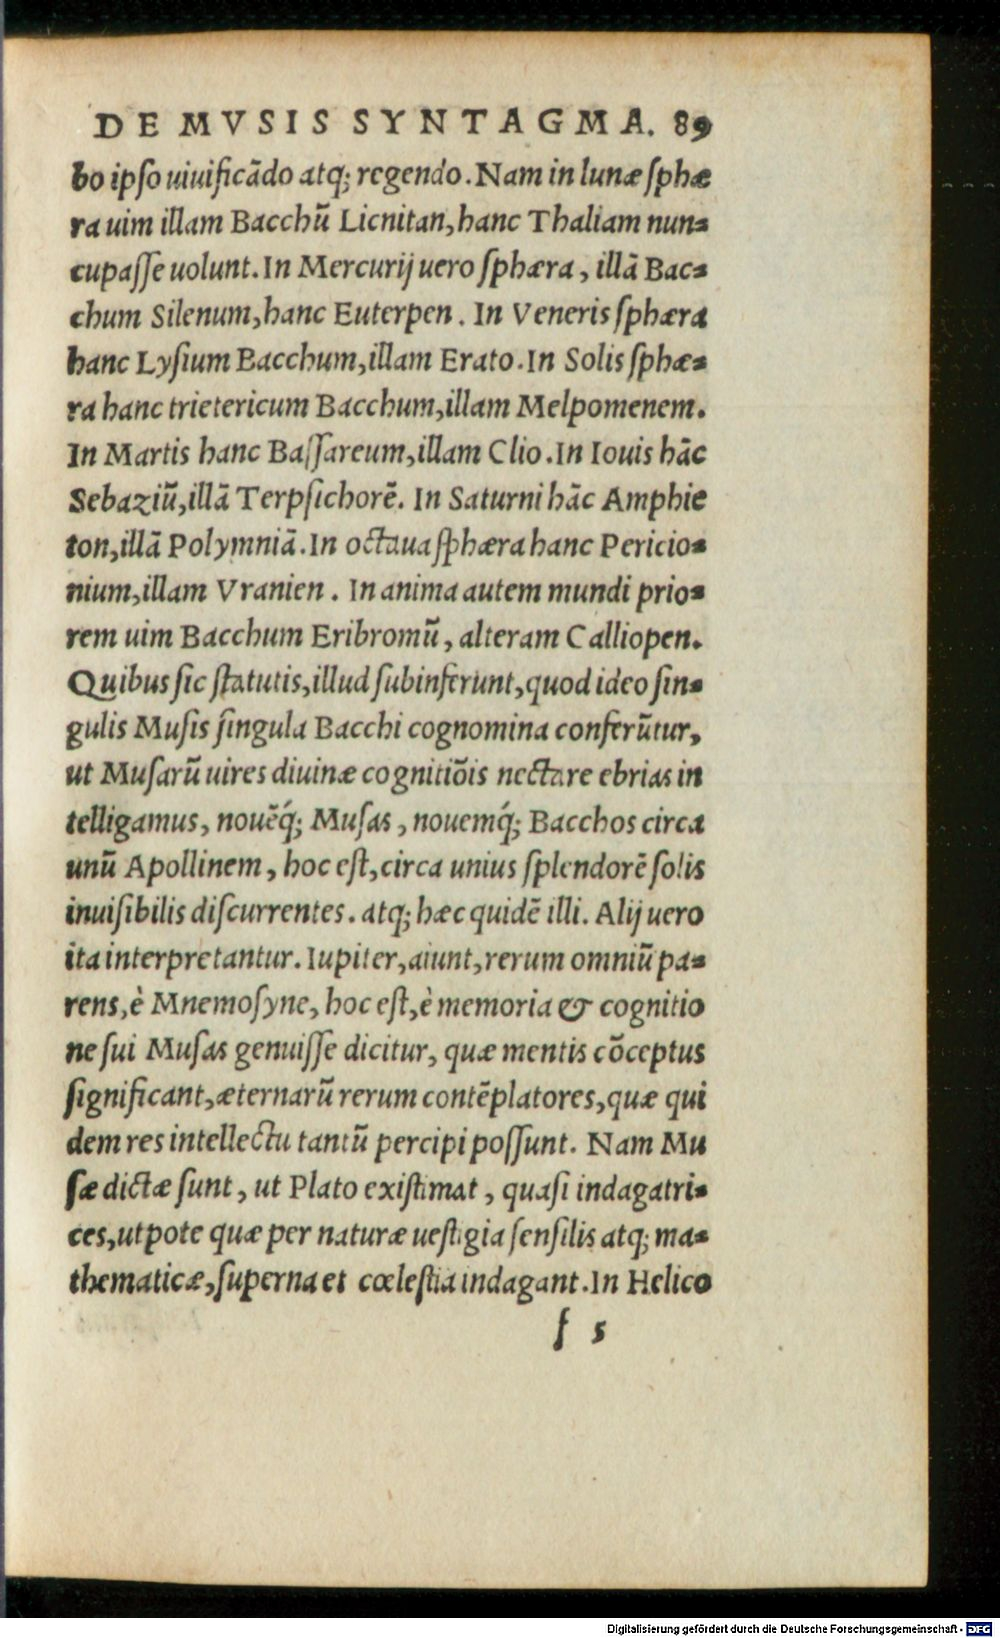 DE MVSIS SYNTAGMA. 89
bo ipſo uiuificãdo atq; regendo. Nam in lunæ ſphæ
ra uim illam Bacchũ Licnitan, hanc Thaliam nun-
cupaſſe uolunt. In Mercurij uero ſphæra, illã Bac-
chum Silenum, hanc Euterpen. In Veneris ſphæra
hanc Lyſium Bacchum, illam Erato. In Solis ſphæ-
ra hanc trietericum Bacchum, illam Melpomenem.
In Martis hanc Baſſareum, illam Clio. In Iouis hãc
Sebaziũ, illã Terpſichorẽ. In Saturni hãc Amphie
ton, illã Polymniã. In octaua ſphæra hanc Pericio-
nium, illam Vranien. In anima autem mundi prio-
rem uim Bacchum Eribromũ, alteram Calliopen.
Quibus ſic ſtatutis, illud ſubinferunt, quod ideo ſin-
gulis Muſis ſingula Bacchi cognomina conferũtur,
ut Muſarũ uires diuinæ cognitiõis nectare ebrias in
telligamus, nouẽq́; Muſas, nouemq́; Bacchos circa
unũ Apollinem, hoc eſt, circa unius ſplendorẽ ſolis
inuiſibilis diſcurrentes. atq; hæc quidẽ illi. Alij uero
ita interpretantur. Iupiter, aiunt, rerum omniũ pa-
rens, è Mnemoſyne, hoc eſt, è memoria & cognitio
ne ſui Muſas genuiſſe dicitur, quæ mentis cõceptus
ſignificant, æternarũ rerum contẽplatores, quæ qui
dem res intellectu tantũ percipi poſſunt. Nam Mu
ſæ dictæ ſunt, ut Plato exiſtimat, quaſi indagatri-
ces, utpote quæ per naturæ ueſtigia ſenſilis atq; ma-
thematicæ, ſuperna et cœleſtia indagant. In Helico
f 5
Digitalisierung gefördert durch die Deutsche Forschungsgemeinschaft - DFG